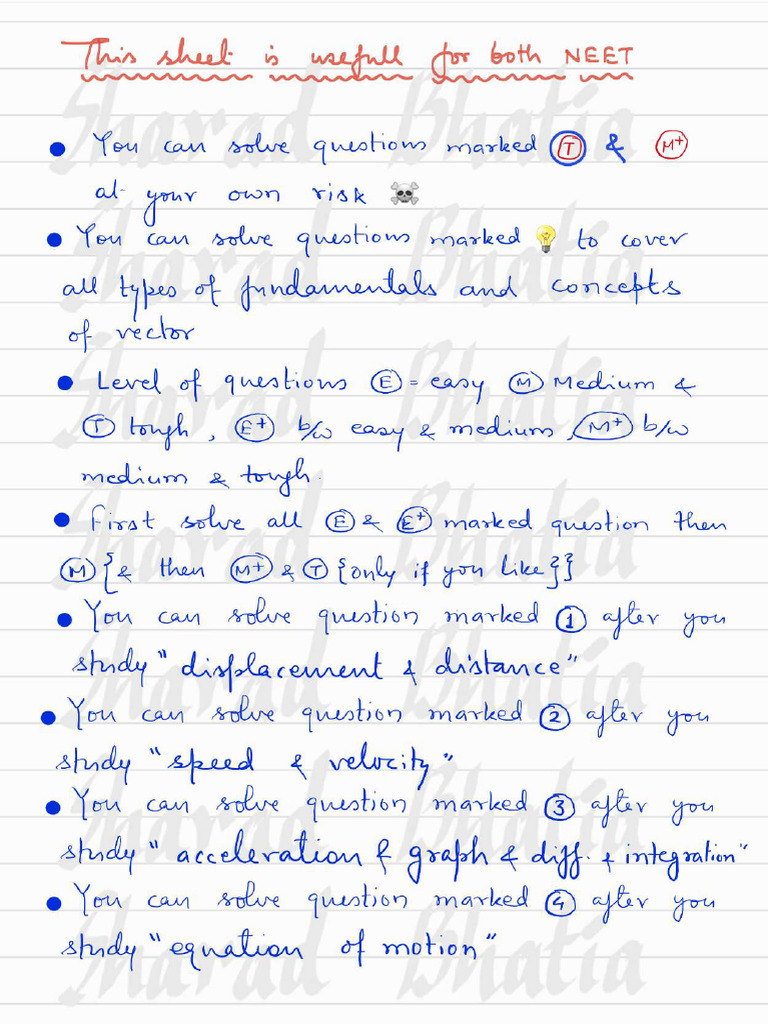 This sheet is usefull for both NEET
● You can solve questions marked Ⓣ & (M+)
at your own risk ☠
● You can solve questions marked 💡 to cover
all types of fundamentals and concepts
of vector
● Level of questions Ⓔ = easy Ⓜ Medium &
Ⓣ tough, (E+) b/w easy & medium, (M+) b/w
medium & tough.
● First solve all Ⓔ & (E+) marked question then
Ⓜ {& then (M+) & Ⓣ {only if you like}}
● You can solve question marked ① after you
study "displacement & distance"
● You can solve question marked ② after you
study "speed & velocity"
● You can solve question marked ③ after you
study "acceleration & graph & diff. & integration"
● You can solve question marked ④ after you
study "equation of motion"
Sharad Bhatia
Sharad Bhatia
Sharad Bhatia
Sharad Bhatia
Sharad Bhatia
Sharad Bhatia
Sharad Bhatia